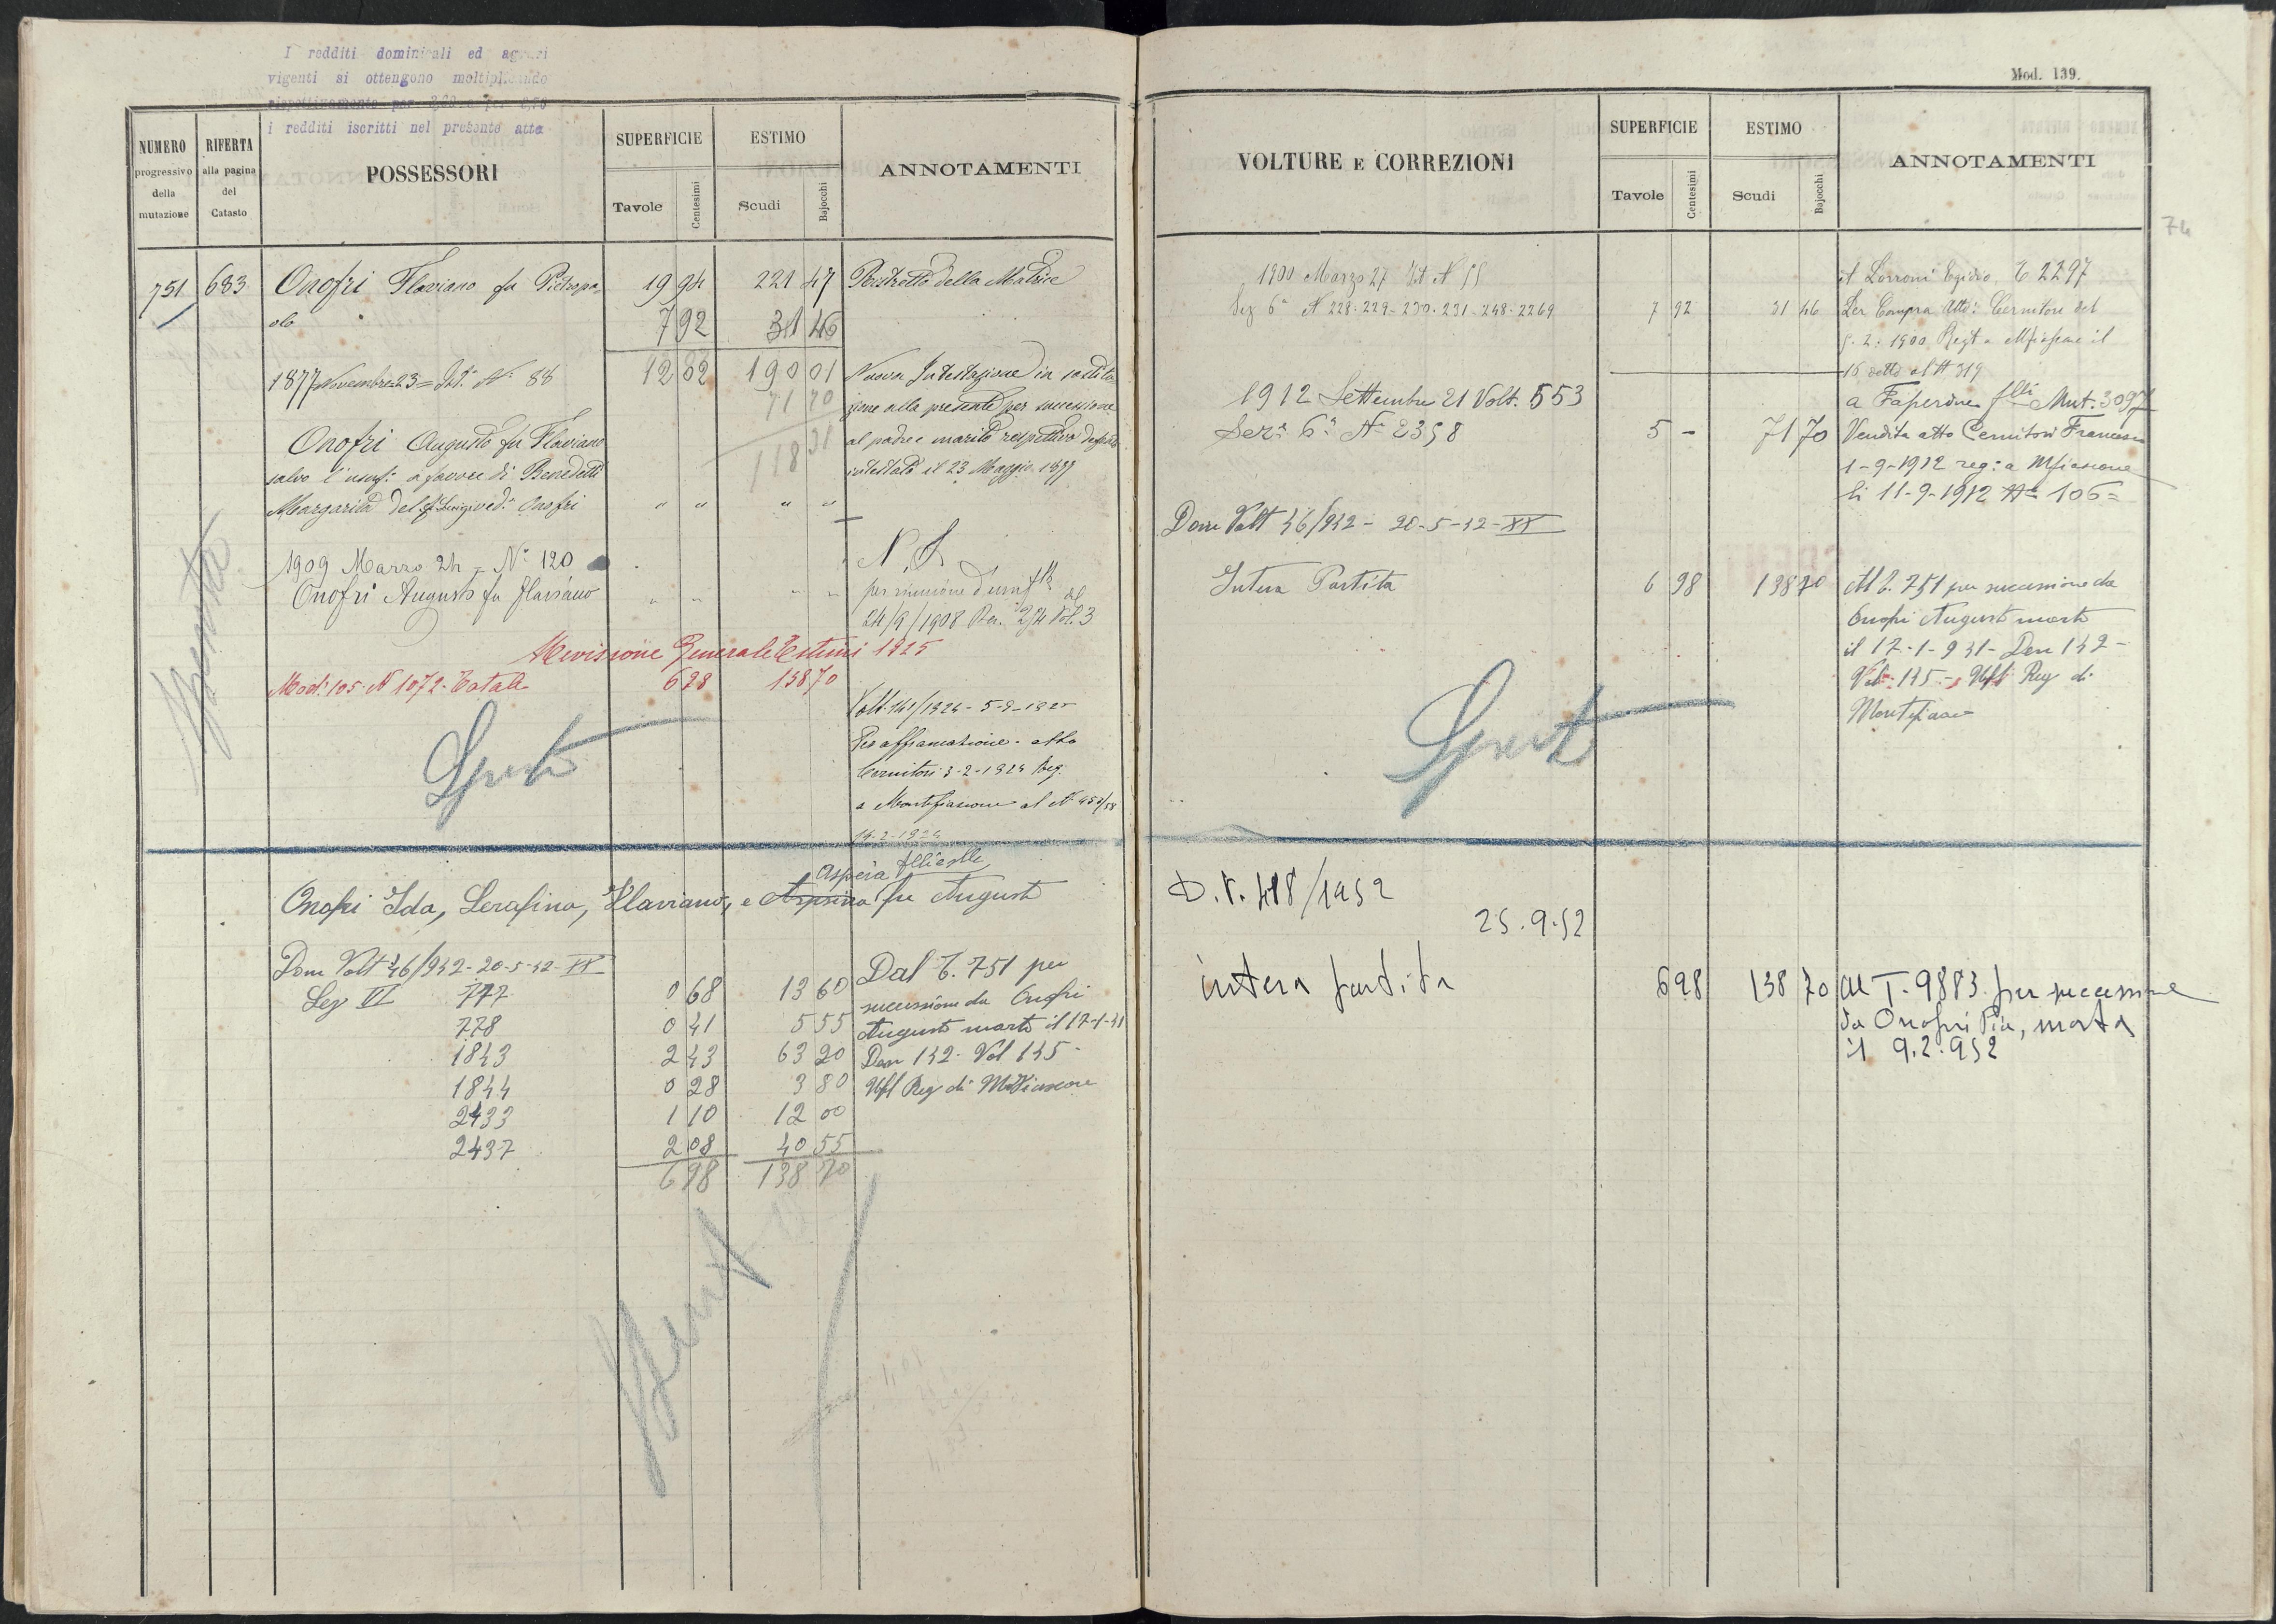 I redditi dominicali ed agrari
vigenti si ottengono moltiplicando
rispettivamente per
i redditi iscritti nel presente atto
NUMERO progressivo della mutazione
RIFERTA alla pagina del Catasto
POSSESSORI
SUPERFICIE
Tavole Centesimi
ESTIMO
Scudi Bajocchi
ANNOTAMENTI
751 683 Onofri Flaviano fu Pietropa- 19 94 221 47 Ristretto della Matrice
olo 7 92 31 46
1877 Novembre 23 = Int. N. 88 12 02 190 01 Nuova Intestazione in sostitu
71 70 zione alla presente per successione
Onofri Augusto fu Flaviano 118 31 al padre e marito rispettivo
salvo l'usuf. a favore di Benedetti intestato il 23 Maggio 1877
Margarita del fu Luigi ved. Onofri " " " "
1909 Marzo 24 = N. 120
Onofri Augusto fu Flaviano " " " " per riunione d'usuf.
24/9/1908 Vol. 3
Revisione Generale Estimi 1925
Mod. 105 N 1072 - Totale 6 98 138 70
Volt. 141/1924 - 5-9-1925
Per affrancazione - atto
Cernitori 3-2-1924 Reg.
a Montefiascone al N 453/58
14-2-1924
Spento
Spento
Aspèria
Onofri Ida, Serafina, Flaviano, e Asperina fu Augusto
Dom Volt 46/942-20-5-42-XX Dal T. 751 per
Sez VI 777 0 68 13 60 successione da Onofri
778 0 41 5 55 Augusto morto il 17-1-41
1843 2 43 63 20 Den 142. Vol 145-
1844 0 28 3 80 Uff Reg di Mtfiascone
2433 1 10 12 00
2437 2 08 40 55
6 98 138 70
Spento
Mod. 139.
74
VOLTURE E CORREZIONI
SUPERFICIE
Tavole Centesimi
ESTIMO
Scudi Bajocchi
ANNOTAMENTI
1900 Marzo 27 Int N 55 A Lorroni Egidio T 2297
Sez 6ª N 228-229-230-231-248-2269 7 92 31 46 Per Compra Atto: Cernitori del
5. 2. 1900 Regt a Mfiascone il
16 detto al N 319
1912 Settembre 21 Volt. 553 a Faperdue flli Mut. 3097
Sez. 6ª N. 2358 5 - 71 70 Vendita atto Cernitori Francesco
1-9-1912 reg: a Mfiascone
li 11-9-1912 N. 106=
Dom Volt 46/942 - 20-5-42-XX
Intera Partita 6 98 138 70 Al T. 751 per successione da
Onofri Augusto morto
il 17-1-941- Den 142-
Vol. 145- Uff Reg di
Montefiasc
Spento
D.V. 418/1952
25.9.52
intera partita 6 98 138 70 al T. 9883 per successione
da Onofri Pia, morta
il 9.2.952